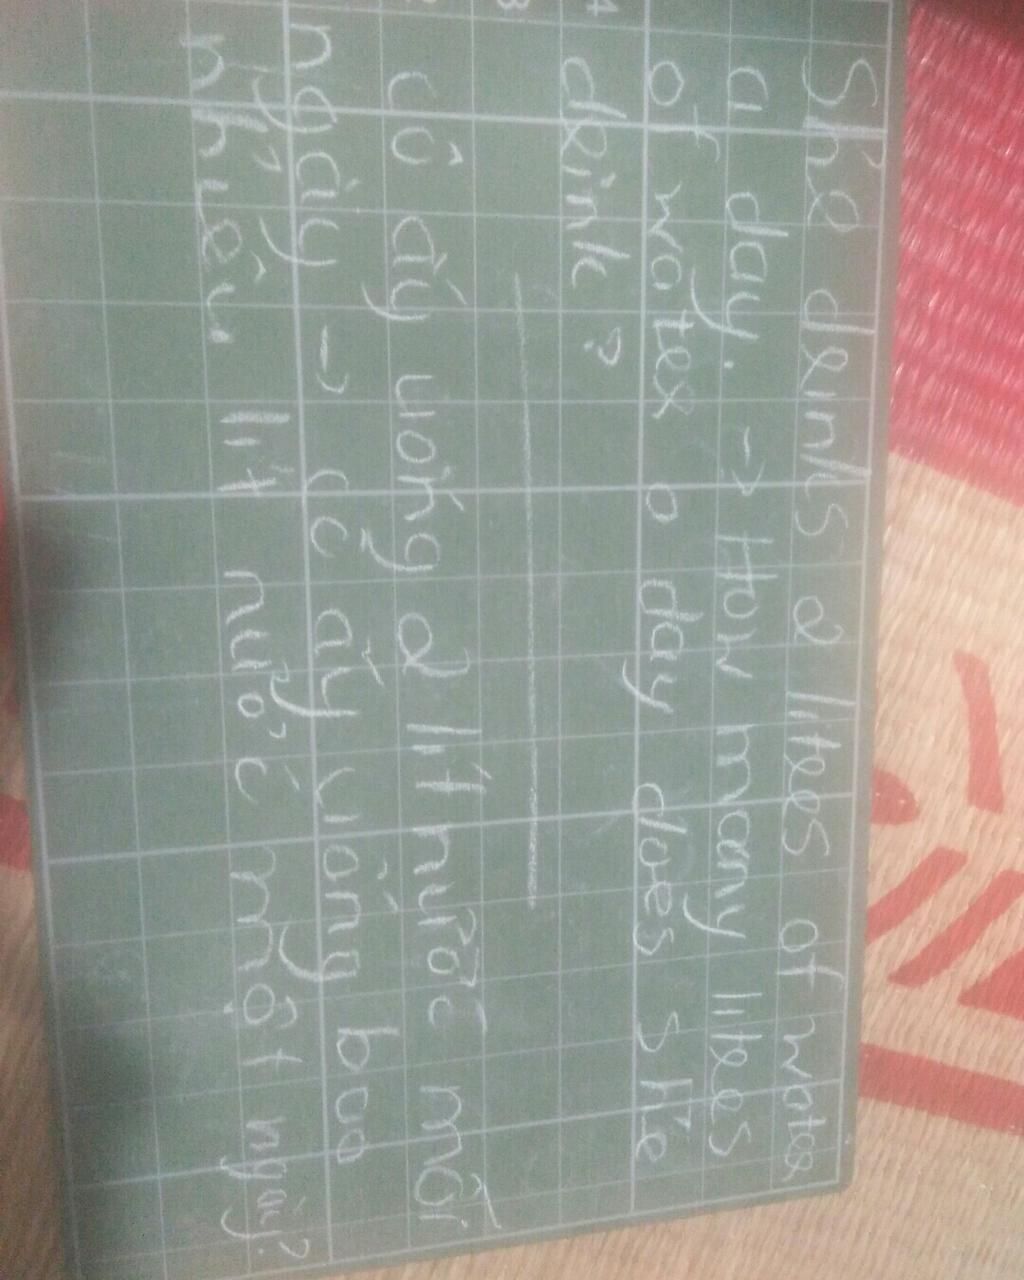 She drinks 2 lites of wotes
a day. -> How many lites
of wotes a day does she
drink?
cô ấy uống 2 lít nước một
ngày -> cô ấy uống bao
nhiêu lít nước một ngày?